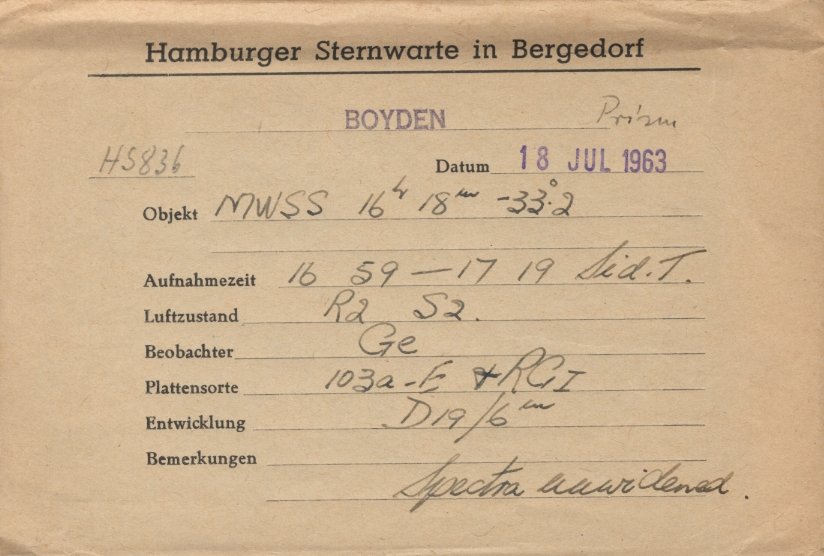 Hamburger Sternwarte in Bergedorf
BOYDEN Prism
HS836 Datum 18 JUL 1963
Objekt MWSS 16h 18m -33°.2
Aufnahmezeit 16 59 — 17 19 Sid. T.
Luftzustand R2 S2.
Beobachter Ge
Plattensorte 103a-E + RG1
Entwicklung D19/6m
Bemerkungen
Spectra unwidened.